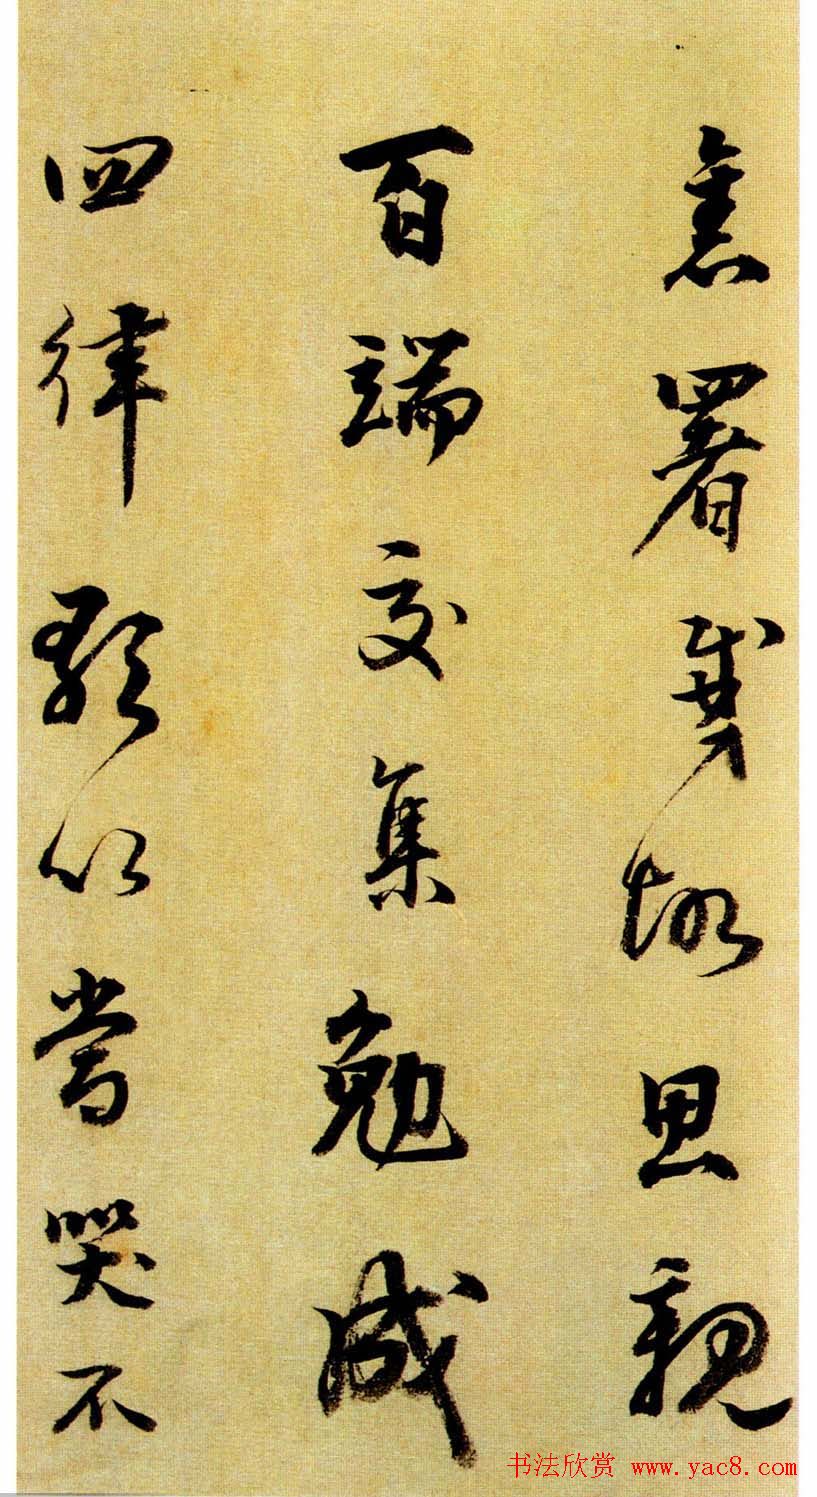 署思親
百端交集勉成
四律歌以當哭不
书法欣赏 www.yac8.com